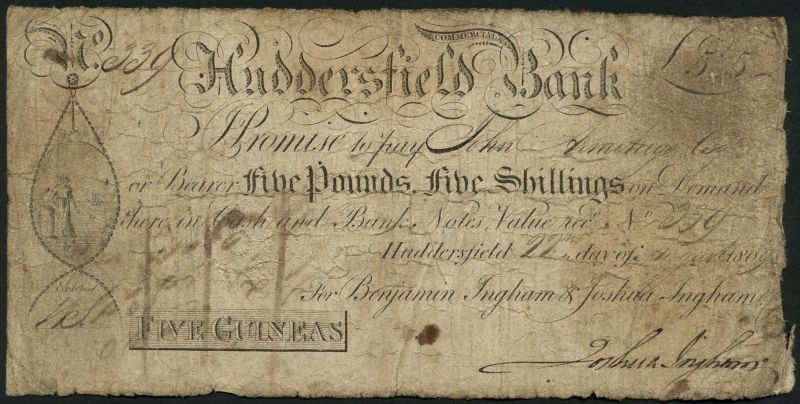 No 339
COMMERCIAL
£5,,5
Huddersfield Bank
I Promise to pay John Armitage Esqr
or Bearer Five Pounds, Five Shillings on Demand
here in Cash and Bank Notes, Value recd No 339
Huddersfield 22nd day of 180
For Benjamin Ingham & Joshua Ingham
Entered
FIVE GUINEAS
Joshua Ingham